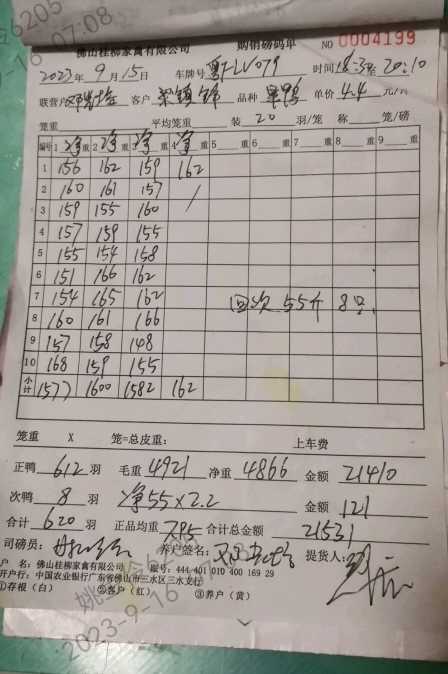 佛山桂柳家禽有限公司 购销磅码单 NO 0004199
2023年9月15日 车牌号 粤F-LV079 时间 18:30至20:10
联营户 客户 品种 单价 4.4 元/斤
笼重 平均笼重 装 20 羽/笼 称 笼/磅
编号 1 净重 2 净重 3 净重 4 净重 5 重 6 重 7 重 8 重 9 重
1 156 162 159 162
2 160 161 157 /
3 159 155 160
4 157 159 155
5 155 154 158
6 151 166 162
7 154 165 162 回次 55斤 8只
8 160 161 166
9 157 158 148
10 168 159 155
小计 1577 1600 1582 162
笼重 X 笼=总皮重: 上车费
正鸭 612 羽 毛重 4921 净重 4866 金额 21410
次鸭 8 羽 净55×2.2 金额 121
合计 620 羽 正品均重 7.95 合计总金额 21531
司磅员: 养户签名: 提货人:
户 名: 佛山桂柳家禽有限公司 账号: 444 401 010 400 169 29
开户行: 中国农业银行广东省佛山市三水区三水支行
①存根(白) ②客户(红) ③养户(黄)
2023-9-16 07:08